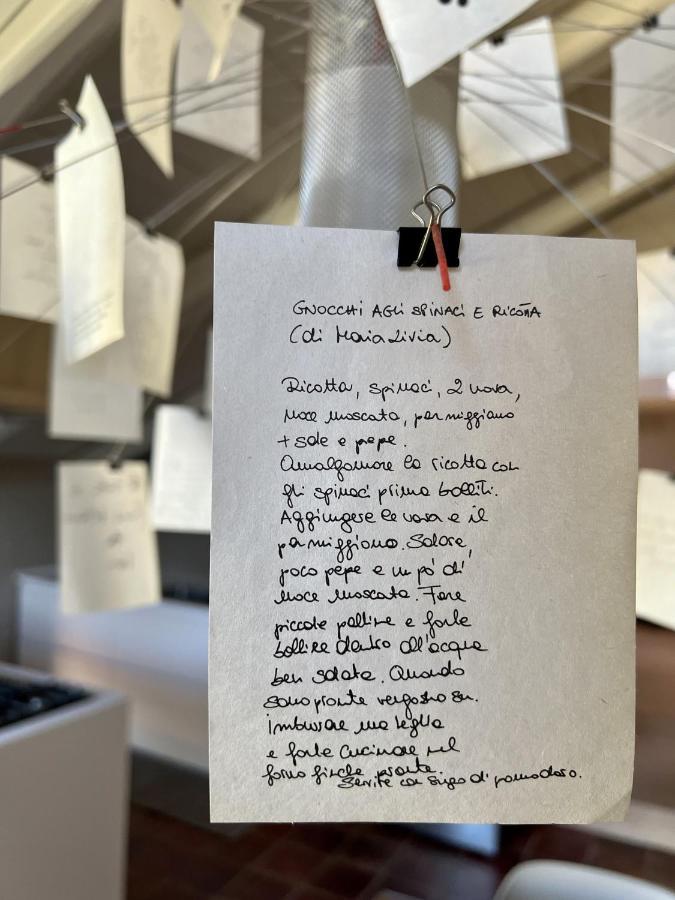 GNOCCHI AGLI SPINACI E RICOTTA
(di Maria Livia)
Ricotta, spinaci, 2 uova,
noce moscata, parmiggiano
+ sale e pepe.
Amalgamare la ricotta con
gli spinaci prima bolliti.
Aggiungere le uova e il
parmiggiano. Salare,
poco pepe e un po' di
noce moscata. Fare
piccole palline e farle
bollire dentro all'acqua
ben salata. Quando
sono pronte vengono su.
Imburrare una teglia
e farle cucinare nel
forno finche pronte.
Servite con sugo di pomodoro.